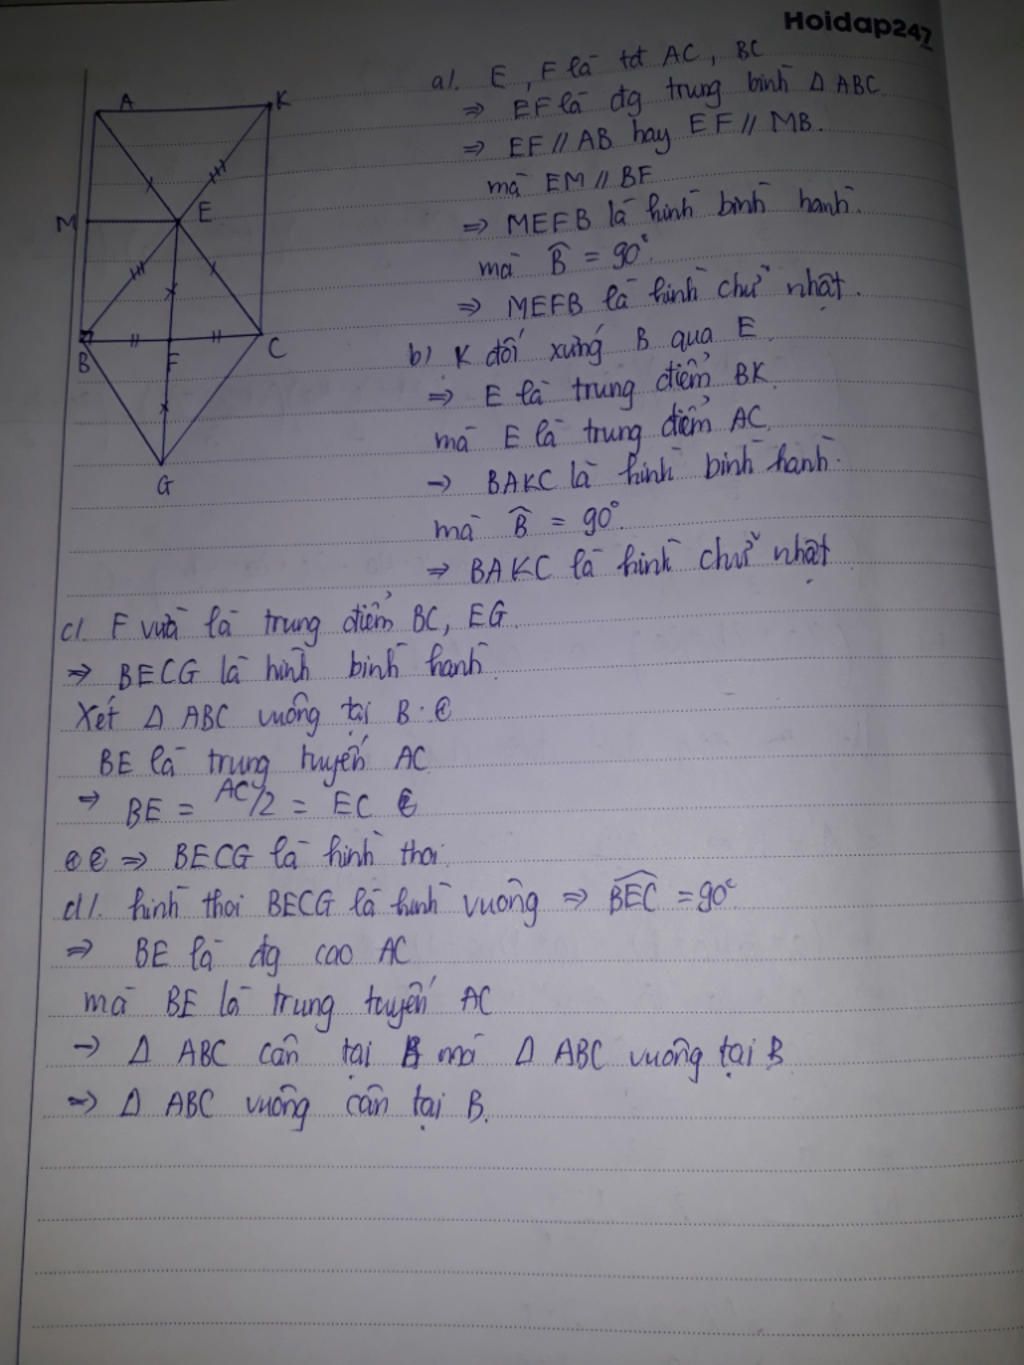 Hoidap247
a). E, F là tđ AC, BC
⇒ EF là đg trung bình Δ ABC.
⇒ EF // AB hay EF // MB.
mà EM // BF
⇒ MEFB là hình bình hành.
mà B̂ = 90°.
⇒ MEFB là hình chữ nhật.
b) K đối xứng B qua E.
⇒ E là trung điểm BK.
mà E là trung điểm AC.
→ BAKC là hình bình hành.
mà B̂ = 90°.
⇒ BAKC là hình chữ nhật
A
K
M
E
B
F
C
G
c). F vừa là trung điểm BC, EG.
⇒ BECG là hình bình hành.
Xét Δ ABC vuông tại B.
BE là trung tuyến AC
⇒ BE = AC/2 = EC
⇒ BECG là hình thoi.
d). hình thoi BECG là hình vuông ⇒ B̂EC = 90°
⇒ BE là đg cao AC
mà BE là trung tuyến AC
→ Δ ABC cân tại B mà Δ ABC vuông tại B
→ Δ ABC vuông cân tại B.